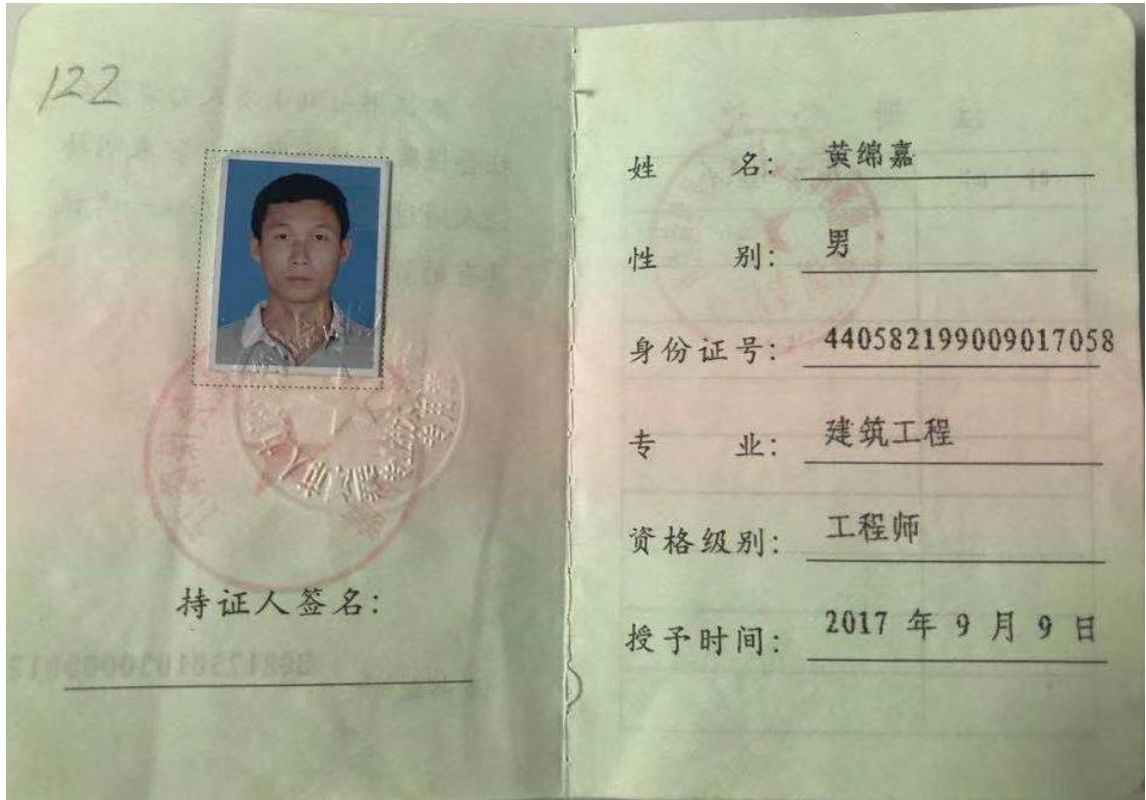 122
持证人签名:
姓 名: 黄绵嘉
性 别: 男
身份证号: 440582199009017058
专 业: 建筑工程
资格级别: 工程师
授予时间: 2017 年 9 月 9 日